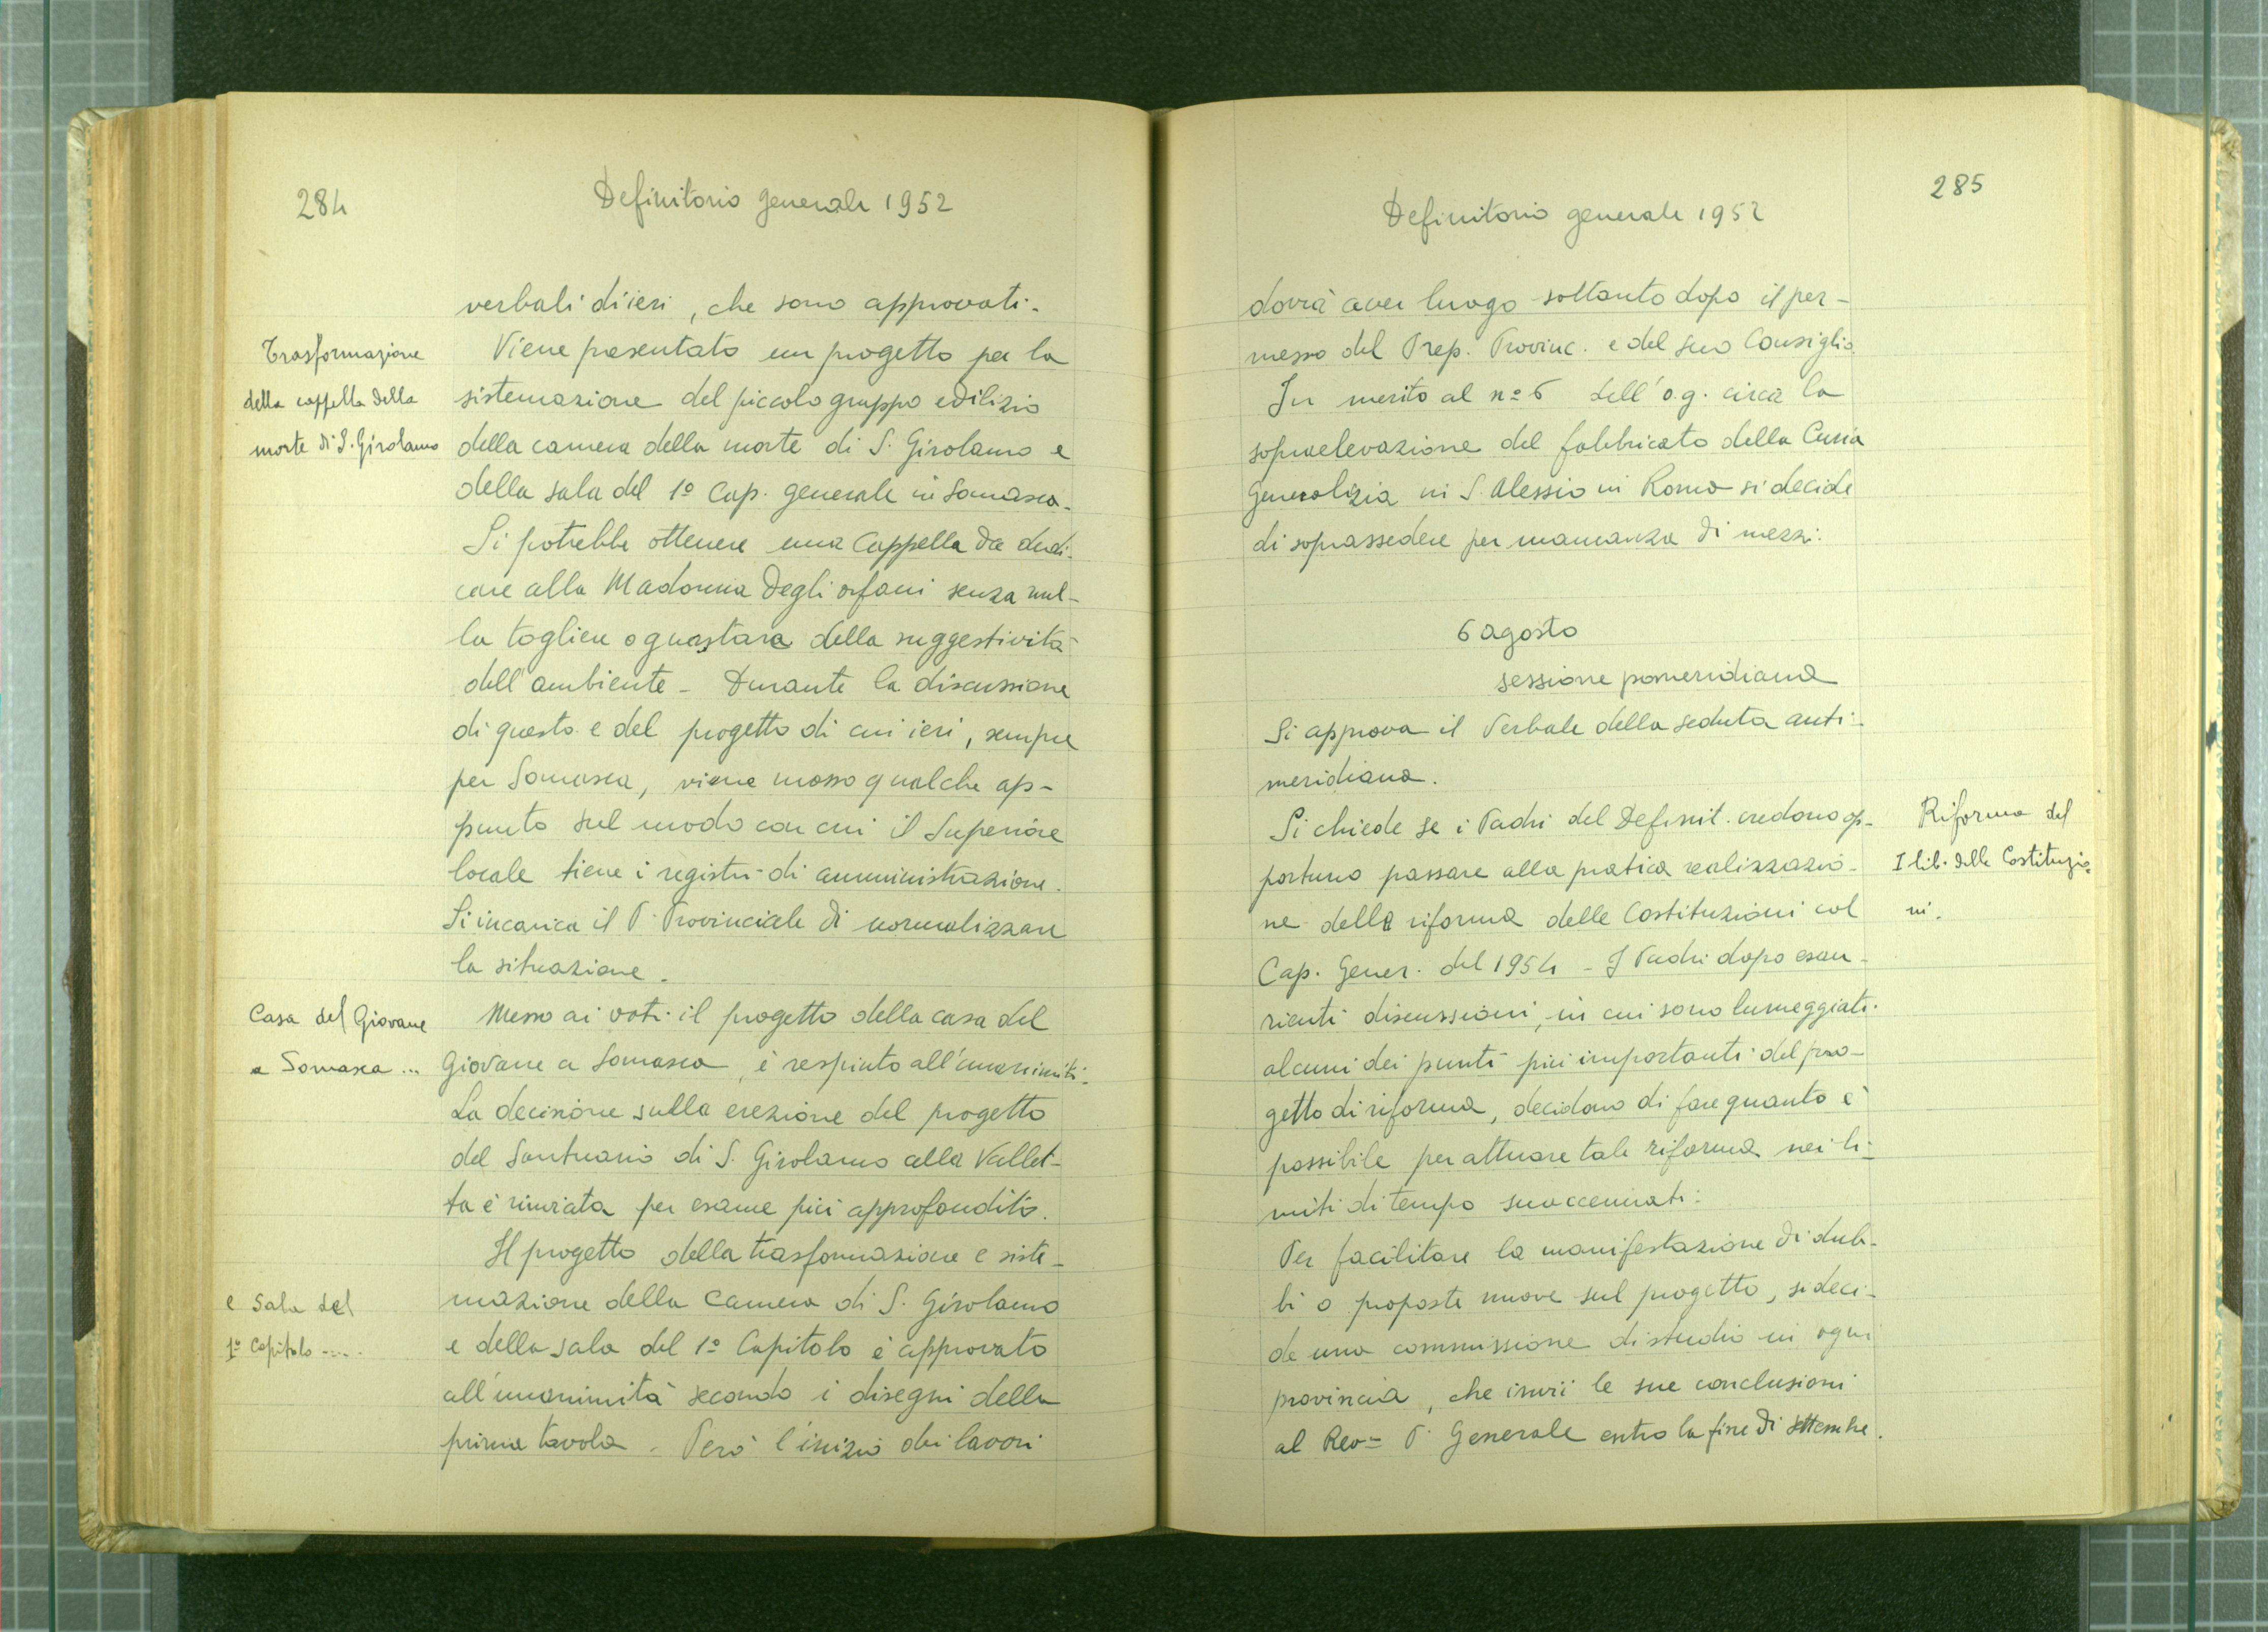 284
Definitorio generale 1952
verbali di ieri, che sono approvati.
Trasformazione
della cappella della
morte di S. Girolamo
Viene presentato un progetto per la
sistemazione del piccolo gruppo edilizio
della camera della morte di S. Girolamo e
della sala del 1º Cap. generale in Somasca.
Si potrebbe ottenere una Cappella da dedi-
care alla Madonna degli orfani senza nul-
la togliere o guastare della suggestività
dell'ambiente - Durante la discussione
di questo e del progetto di cui ieri, sempre
per Somasca, viene mosso qualche ap-
punto sul modo con cui il Superiore
locale tiene i registri di amministrazione.
Si incarica il P. Provinciale di normalizzare
la situazione.
Casa del Giovane
a Somasca ...
Messo ai voti il progetto della casa del
Giovane a Somasca, è respinto all'unanimità.
La decisione sulla erezione del progetto
del Santuario di S. Girolamo alla Vallet-
ta è rinviata per esame più approfondito.
Il progetto della trasformazione e siste-
e sala del
1º Capitolo .....
mazione della Camera di S. Girolamo
e della sala del 1º Capitolo è approvato
all'unanimità secondo i disegni della
prima tavola. Però l'inizio dei lavori
285
Definitorio generale 1952
dovrà aver luogo soltanto dopo il per-
messo del Prep. Provinc. e del suo Consiglio.
In merito al nº 6 dell'o.g. circa la
sopraelevazione del fabbricato della Curia
Generalizia in S. Alessio in Roma si decide
di soprassedere per mancanza di mezzi.
6 agosto
sessione pomeridiana
Si approva il Verbale della seduta anti-
meridiana.
Riforma del
I lib. delle Costituzio
ni.
Si chiede se i Padri del Definit. credono op-
portuno passare alla pratica realizzazio-
ne della riforma delle Costituzioni col
Cap. Gener. del 1954 - I Padri dopo esau-
rienti discussioni, in cui sono lumeggiati
alcuni dei punti più importanti del pro-
getto di riforma, decidono di fare quanto è
possibile per attuare tale riforma nei li-
miti di tempo suaccennati.
Per facilitare la manifestazione di dub-
bi o proposte nuove sul progetto, si deci-
de una commissione di studio in ogni
provincia, che invii le sue conclusioni
al Rev= P. Generale entro la fine di settembre.